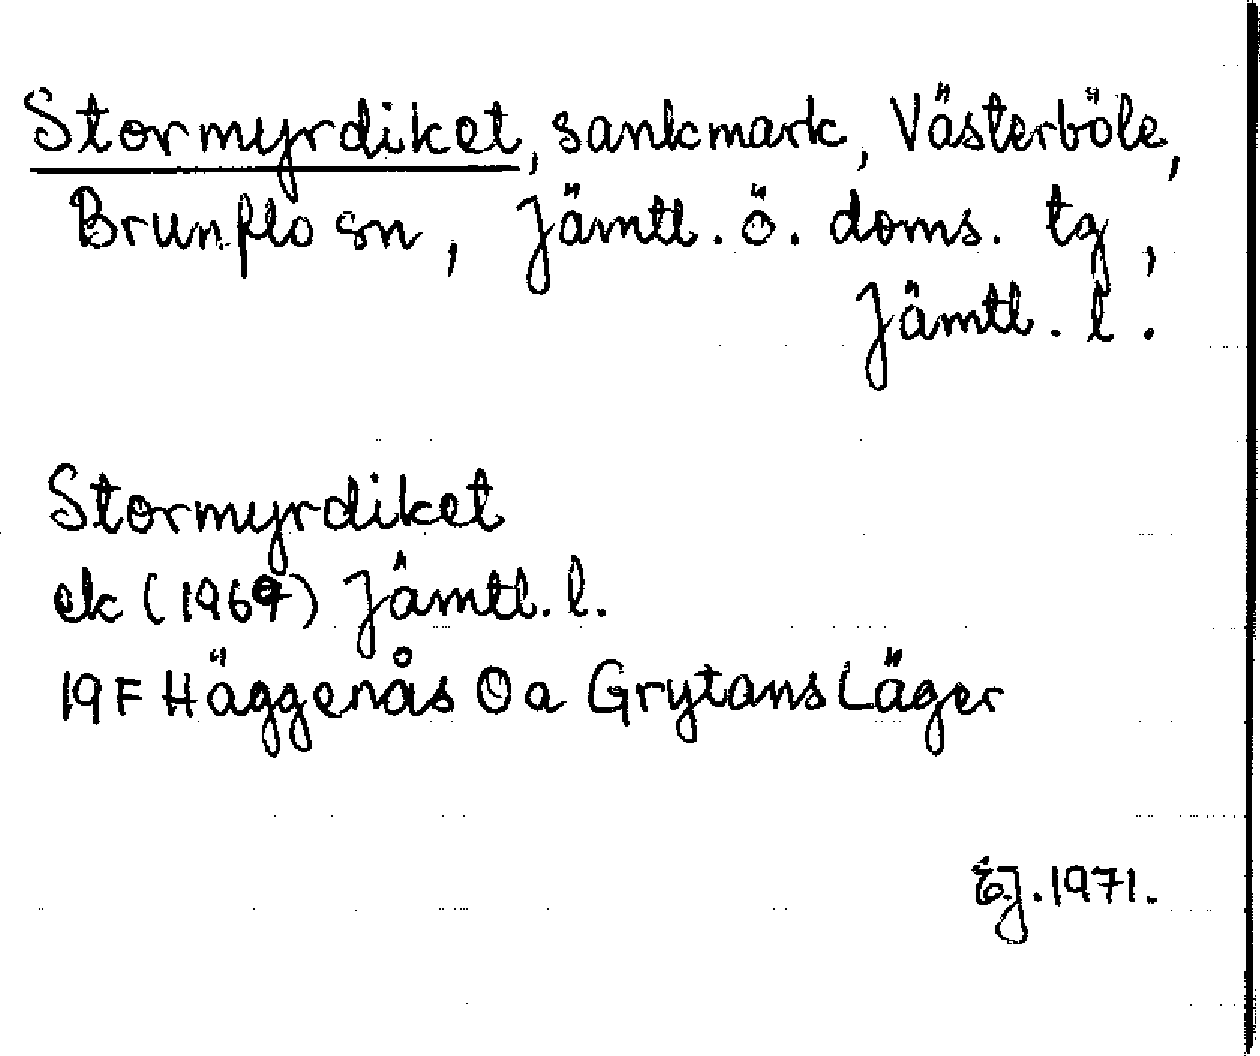 Stormyrdiket, sankmark, Västerböle,
Brunflo sn, Jämtl. ö. doms. tg,
Jämtl. l.
Stormyrdiket
ek (1969) Jämtl. l.
19F Häggenås 0a Grytans Läger
EJ. 1971.